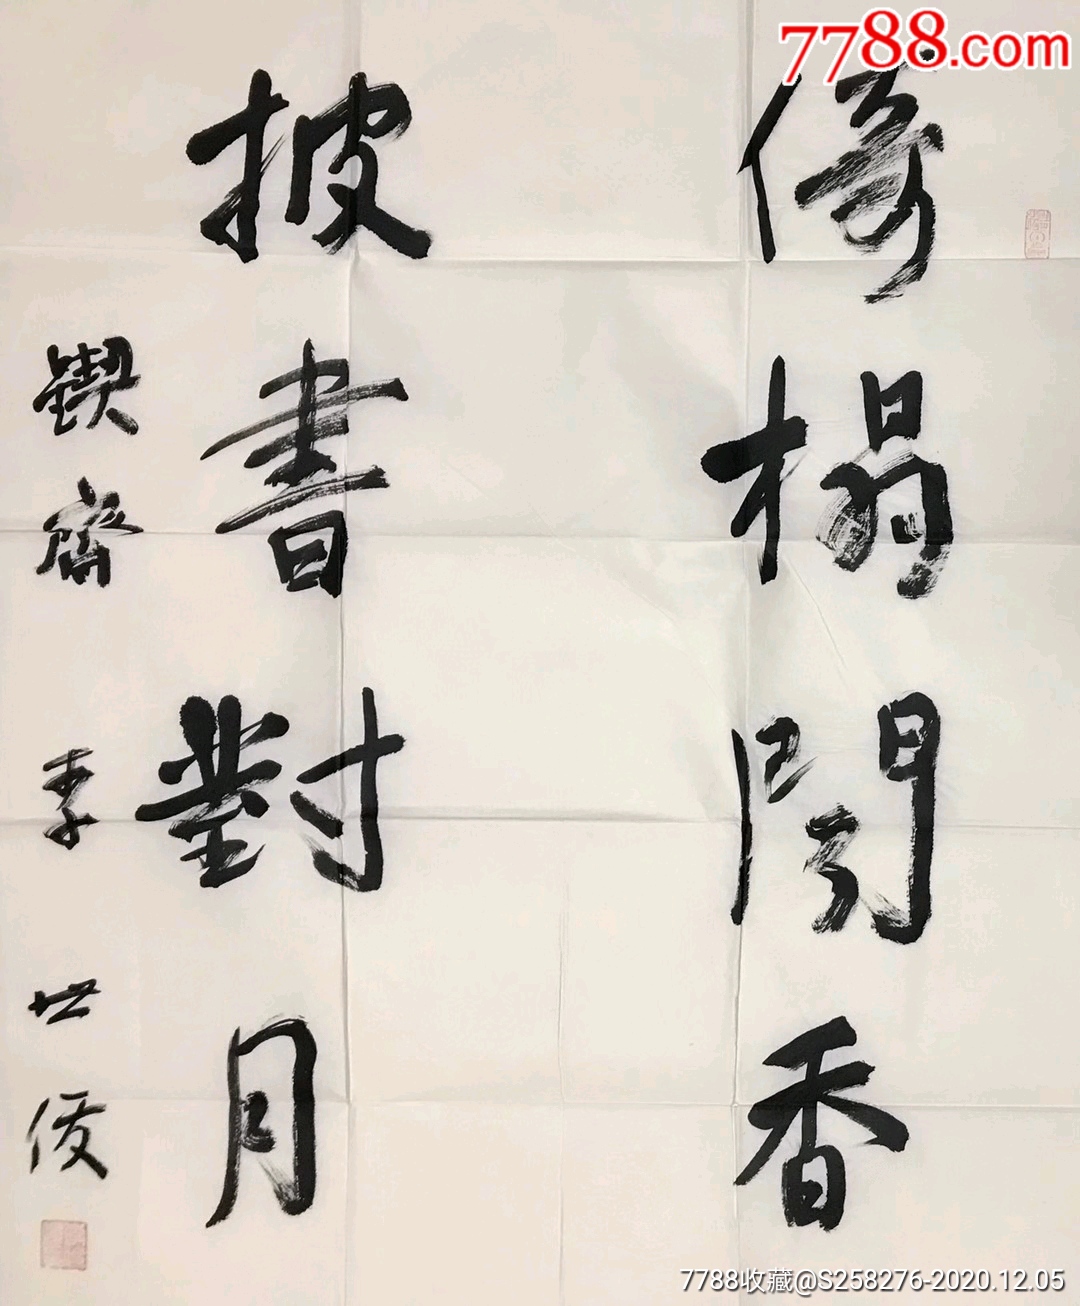 7788.com
倚榻闻香
披書對月
鍥齋 李世俊
7788收藏@S258276-2020.12.05